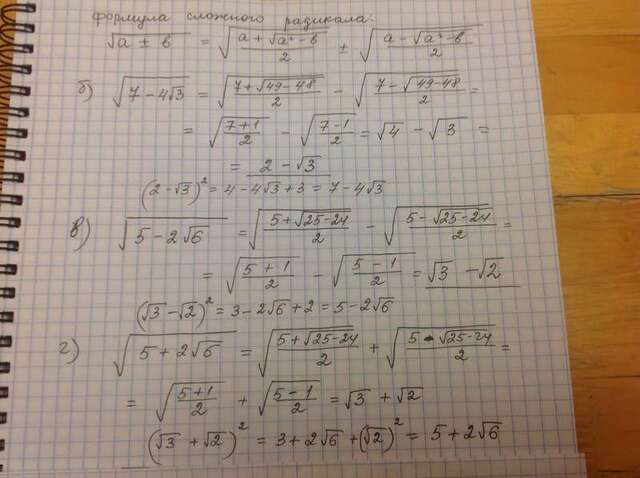 формула сложного радикала:
√(a ± b) = √((a + √(a² - b))/2) ± √((a - √(a² - b))/2)
б) √(7 - 4√3) = √((7 + √(49 - 48))/2) - √((7 - √(49 - 48))/2) =
= √((7 + 1)/2) - √((7 - 1)/2) = √4 - √3 =
= 2 - √3
(2 - √3)² = 4 - 4√3 + 3 = 7 - 4√3
в) √(5 - 2√6) = √((5 + √(25 - 24))/2) - √((5 - √(25 - 24))/2) =
= √((5 + 1)/2) - √((5 - 1)/2) = √3 - √2
(√3 - √2)² = 3 - 2√6 + 2 = 5 - 2√6
г) √(5 + 2√6) = √((5 + √(25 - 24))/2) + √((5 - √(25 - 24))/2) =
= √((5 + 1)/2) + √((5 - 1)/2) = √3 + √2
(√3 + √2)² = 3 + 2√6 + (√2)² = 5 + 2√6